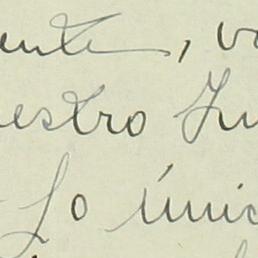 ente, vo
estro In
Lo únic